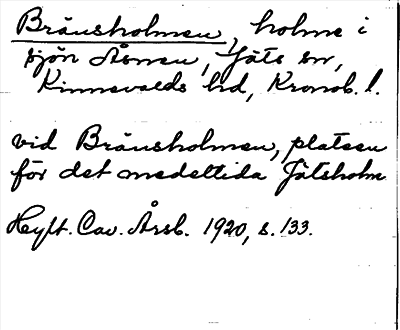 Bräusholmen, holme i
sjön Åsnen, Jäts sn,
Kinnevalds hd, Kronob. l.
vid Bräusholmen, platsen
för det medeltida Jätsholm
Hylt. Cav. Årsb. 1920, s. 133.